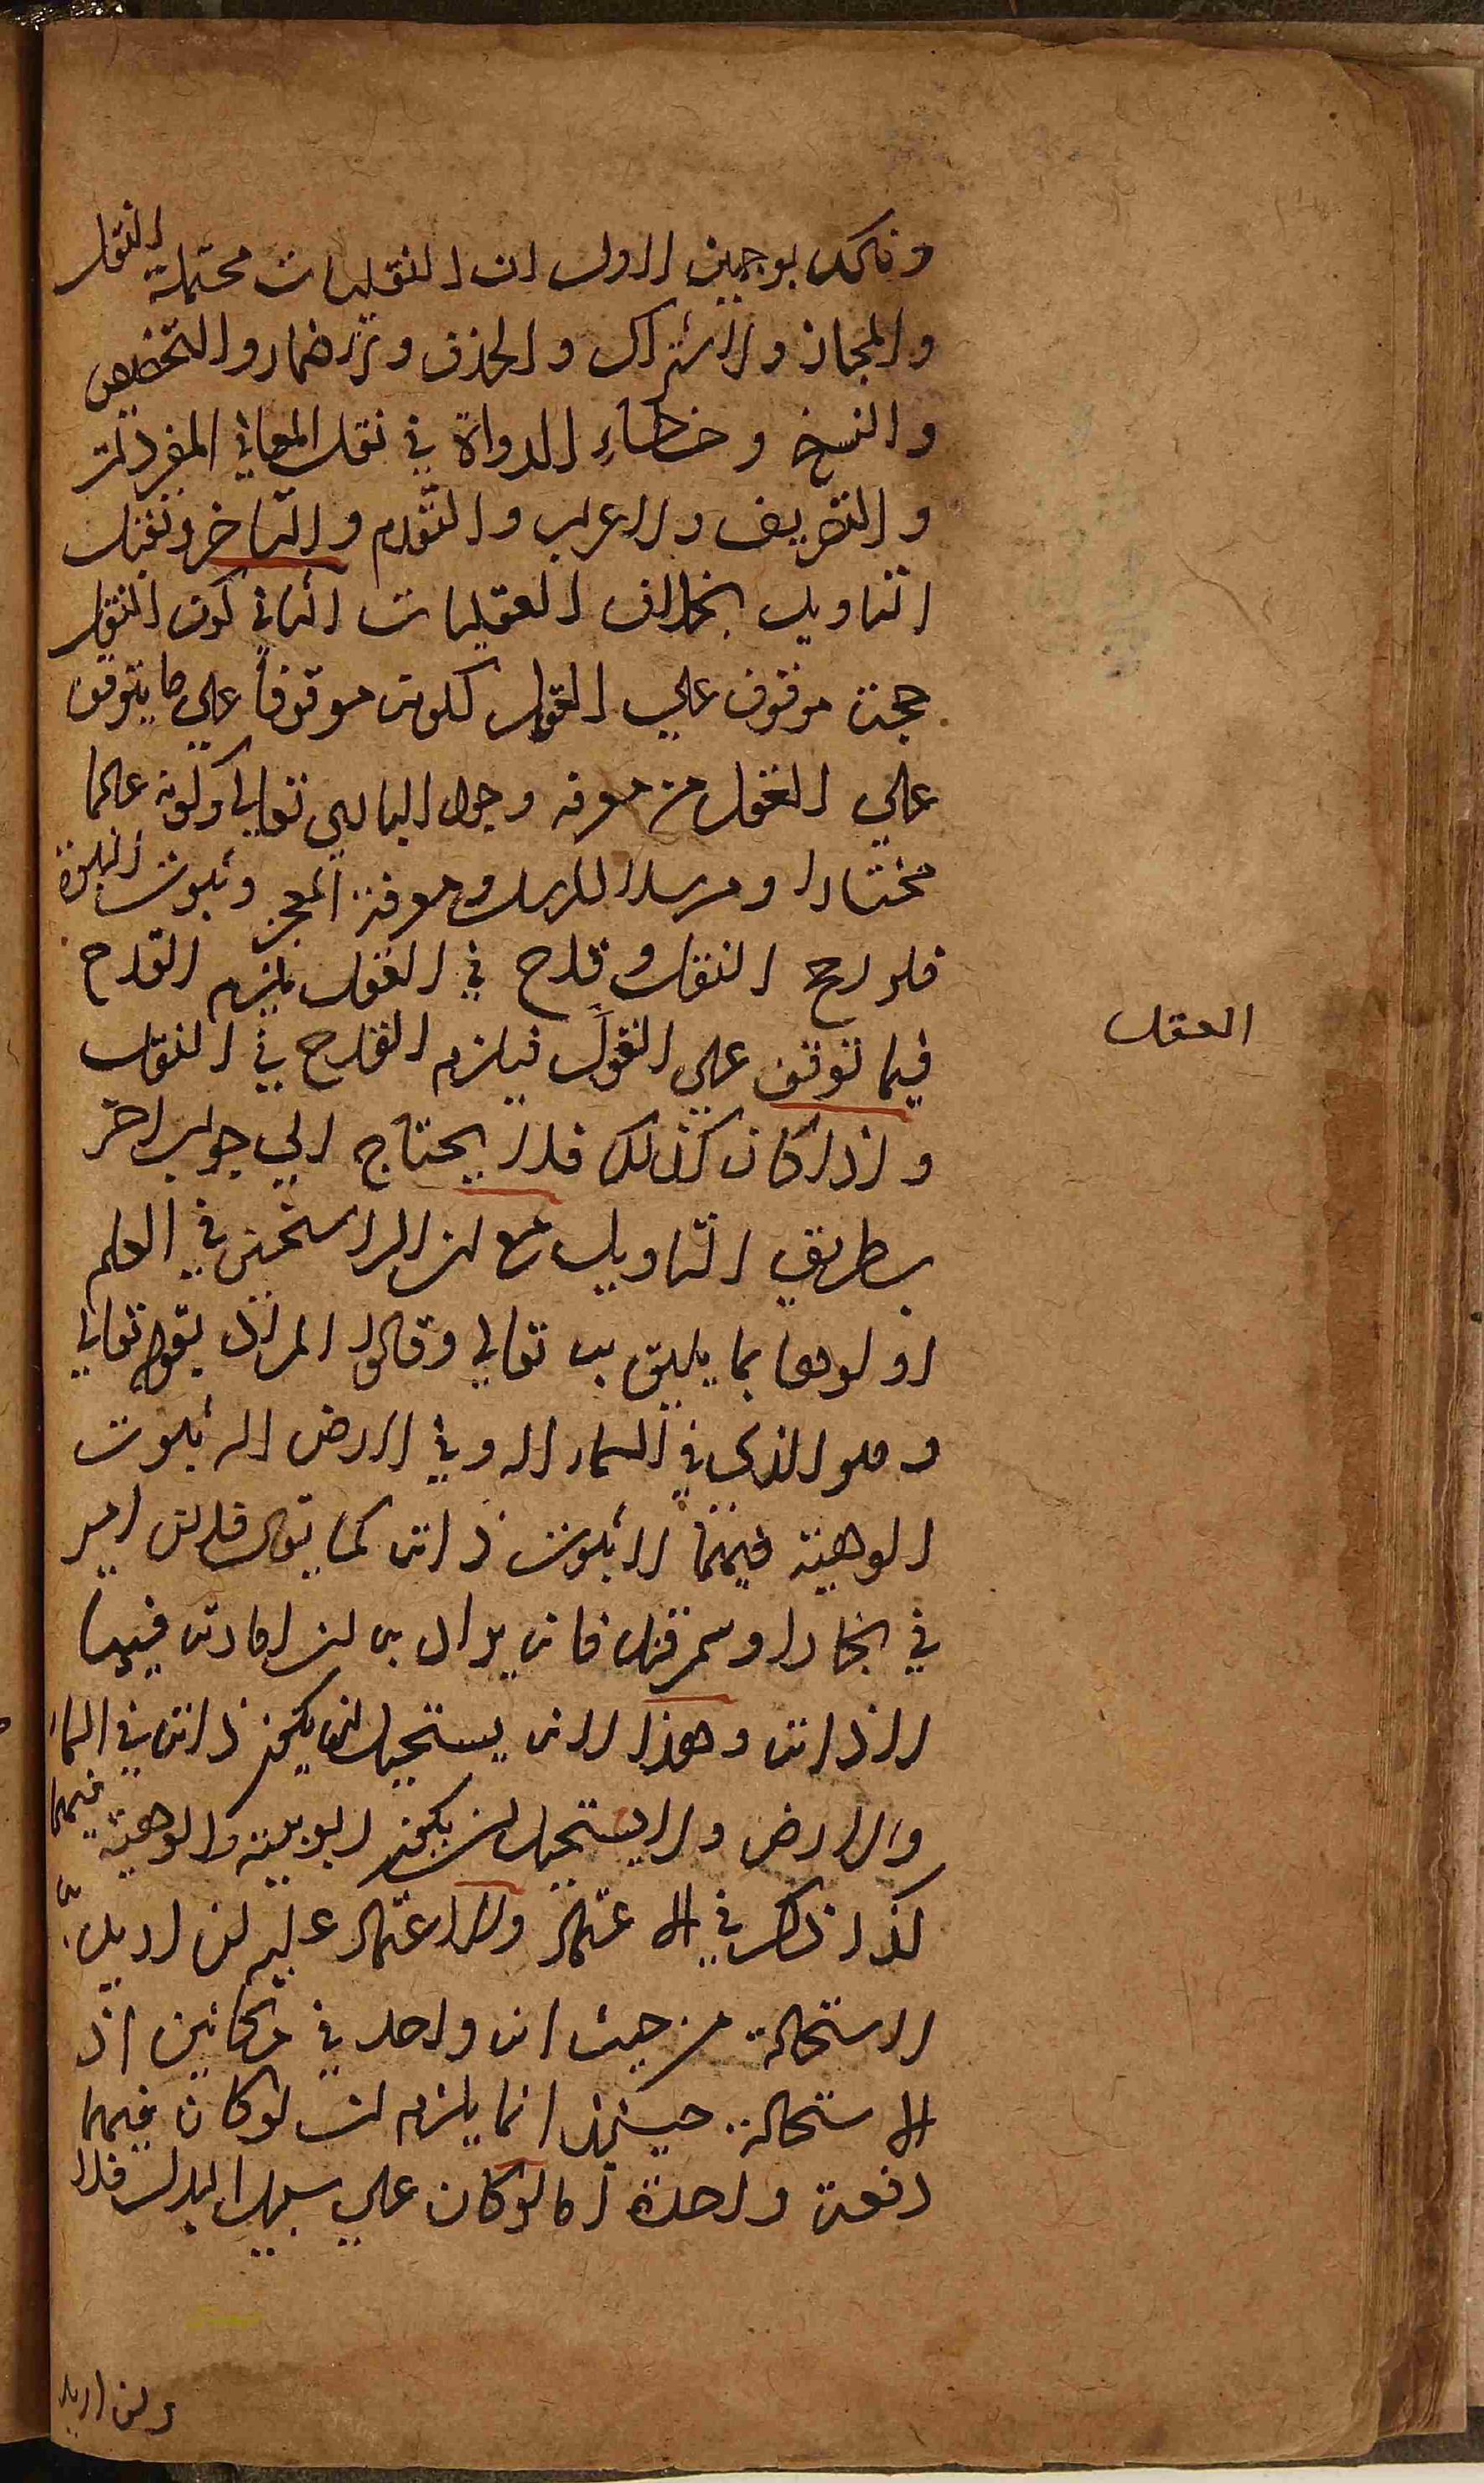 وذلك بوجهين الاول ان النقليات محتملة النقل
والمجاز والاشتراك والحذف والاضمار والتخصيص
والنسخ وخطاء الرواة في نقل المعاني المفردة
والتصريف والاعراب والتقدم والتاخر وتقبل
التاويل بخلاف العقليات الثاني كون النقل
حجة موقوف على العقل لكونه موقوفا على ما يتوقف
على العقل من معرفة وجود الباري تعالى وكونه عالما
مختارا ومرسلا للرسل ومعرفة المعجز وثبوت النبوة
فلو رجح النقل وقدح في العقل يلزم القدح
فيما توقف على العقل فيلزم القدح في النقل
العقل
واذا كان كذلك فلا يحتاج الى جواب اخر
بطريق التاويل مع ان الراسخين في العلم
اولوها بما يليق به تعالى وقالوا المراد بقوله تعالى
وهو الذي في السماء اله وفي الارض اله ثبوت
الوهيته فيهما لا ثبوت ذاته كما يقال فلان امير
في بخارا وسمرقند فانه يراد به ان امارته فيهما
لا ذاته وهذا لانه يستحيل ان يكون ذاته في السماء
والارض ولا يستحيل ان يكون ربوبيته والوهيته فيهما
كذا ذكر في الاعتماد والاعتماد عليه ان اريد به
الاستحالة من حيث انه واحد في مكانين اذ
الاستحالة حينئذ انما يلزم ان لو كان فيهما
دفعة واحدة اما لو كان على سبيل البدل فلا
وان اريد